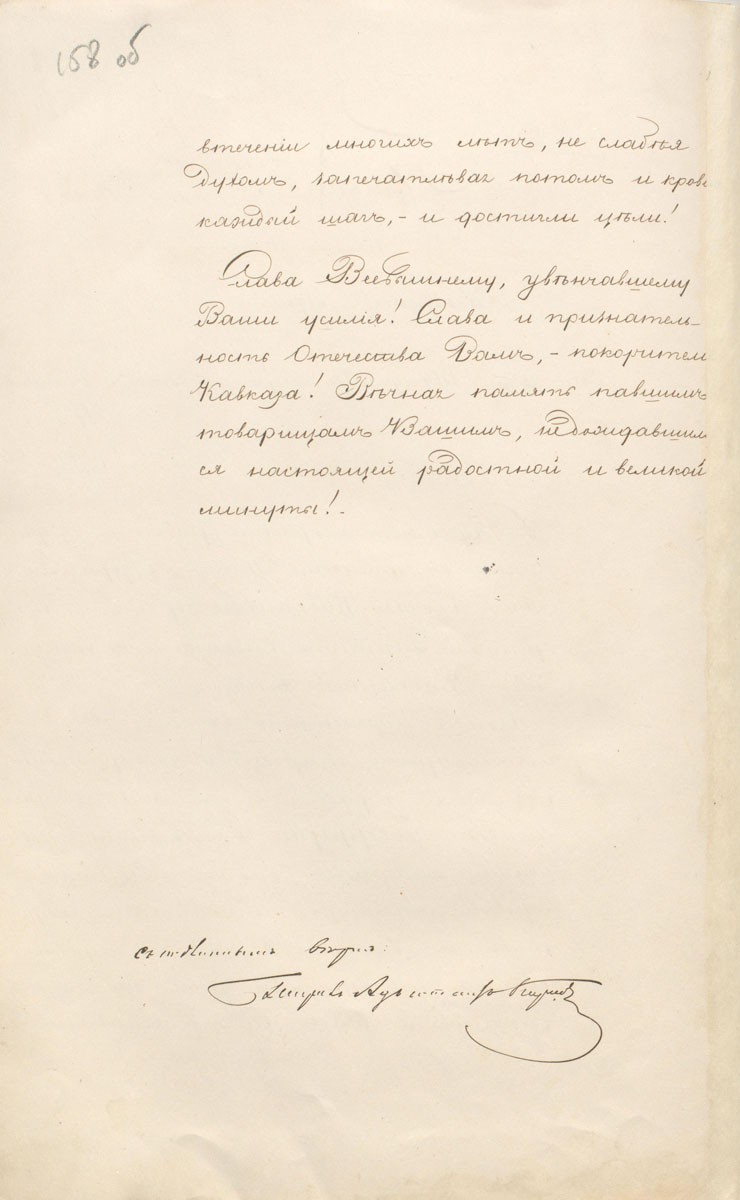 158 об
втеченiи многихъ лѣтъ, не слабѣя
духомъ, запечатлѣвая потомъ и кров
каждый шагъ, - и достигли цѣли!
Слава Всевышнему, увѣнчавшему
Ваши усилiя! Слава и признатель-
ность Отечества Вамъ, - покорители
Кавказа! Вѣчная память павшимъ
товарищамъ Вашимъ, недожидавшим
ся настоящей радостной и великой
минуты! -
съ подлиннымъ вѣрно:
Генералъ Адъютантъ